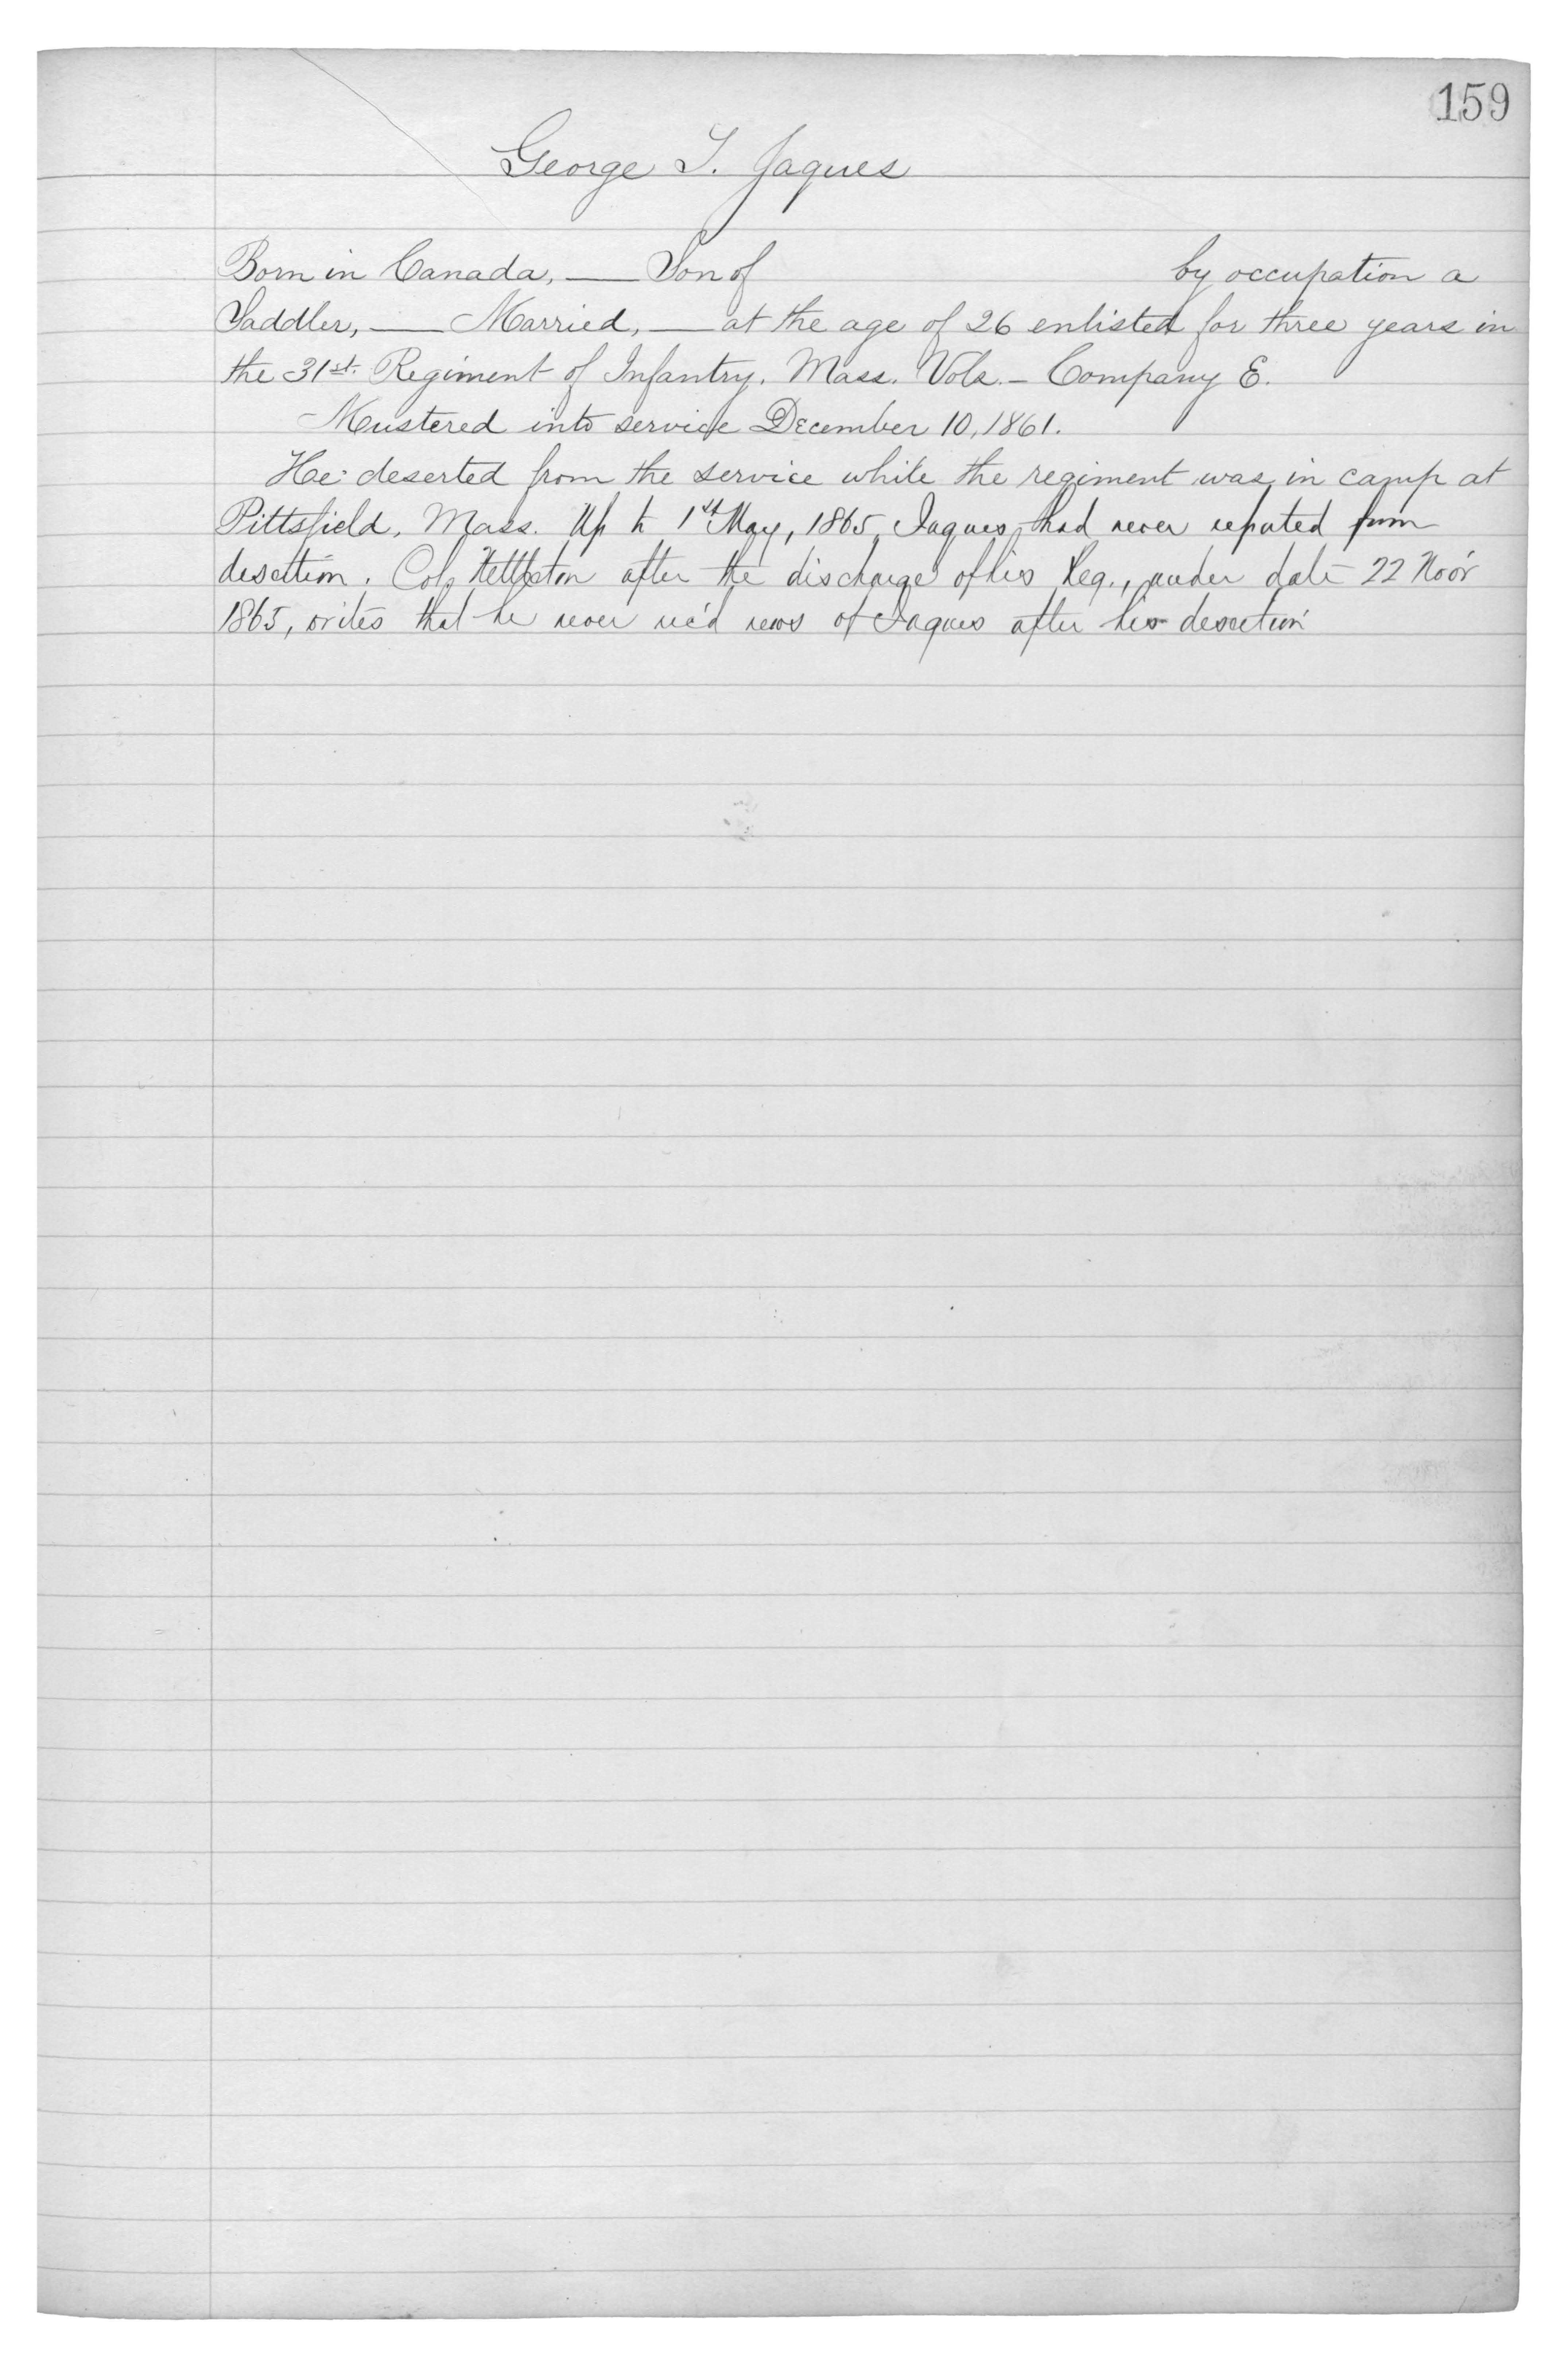 159
George T. Jaques
Born in Canada, — Son of by occupation a
Saddler, — Married, — at the age of 26 enlisted for three years in
the 31st. Regiment of Infantry. Mass. Vols. – Company E.
Mustered into service December 10, 1861.
He deserted from the service while the regiment was in camp at
Pittsfield, Mass. Up to 1st May, 1865, Jaques had never reported from
desertion. Col. Nettleton after the discharge of his Reg., under date 22 Nov'r
1865, writes that he never rec'd news of Jaques after his desertion